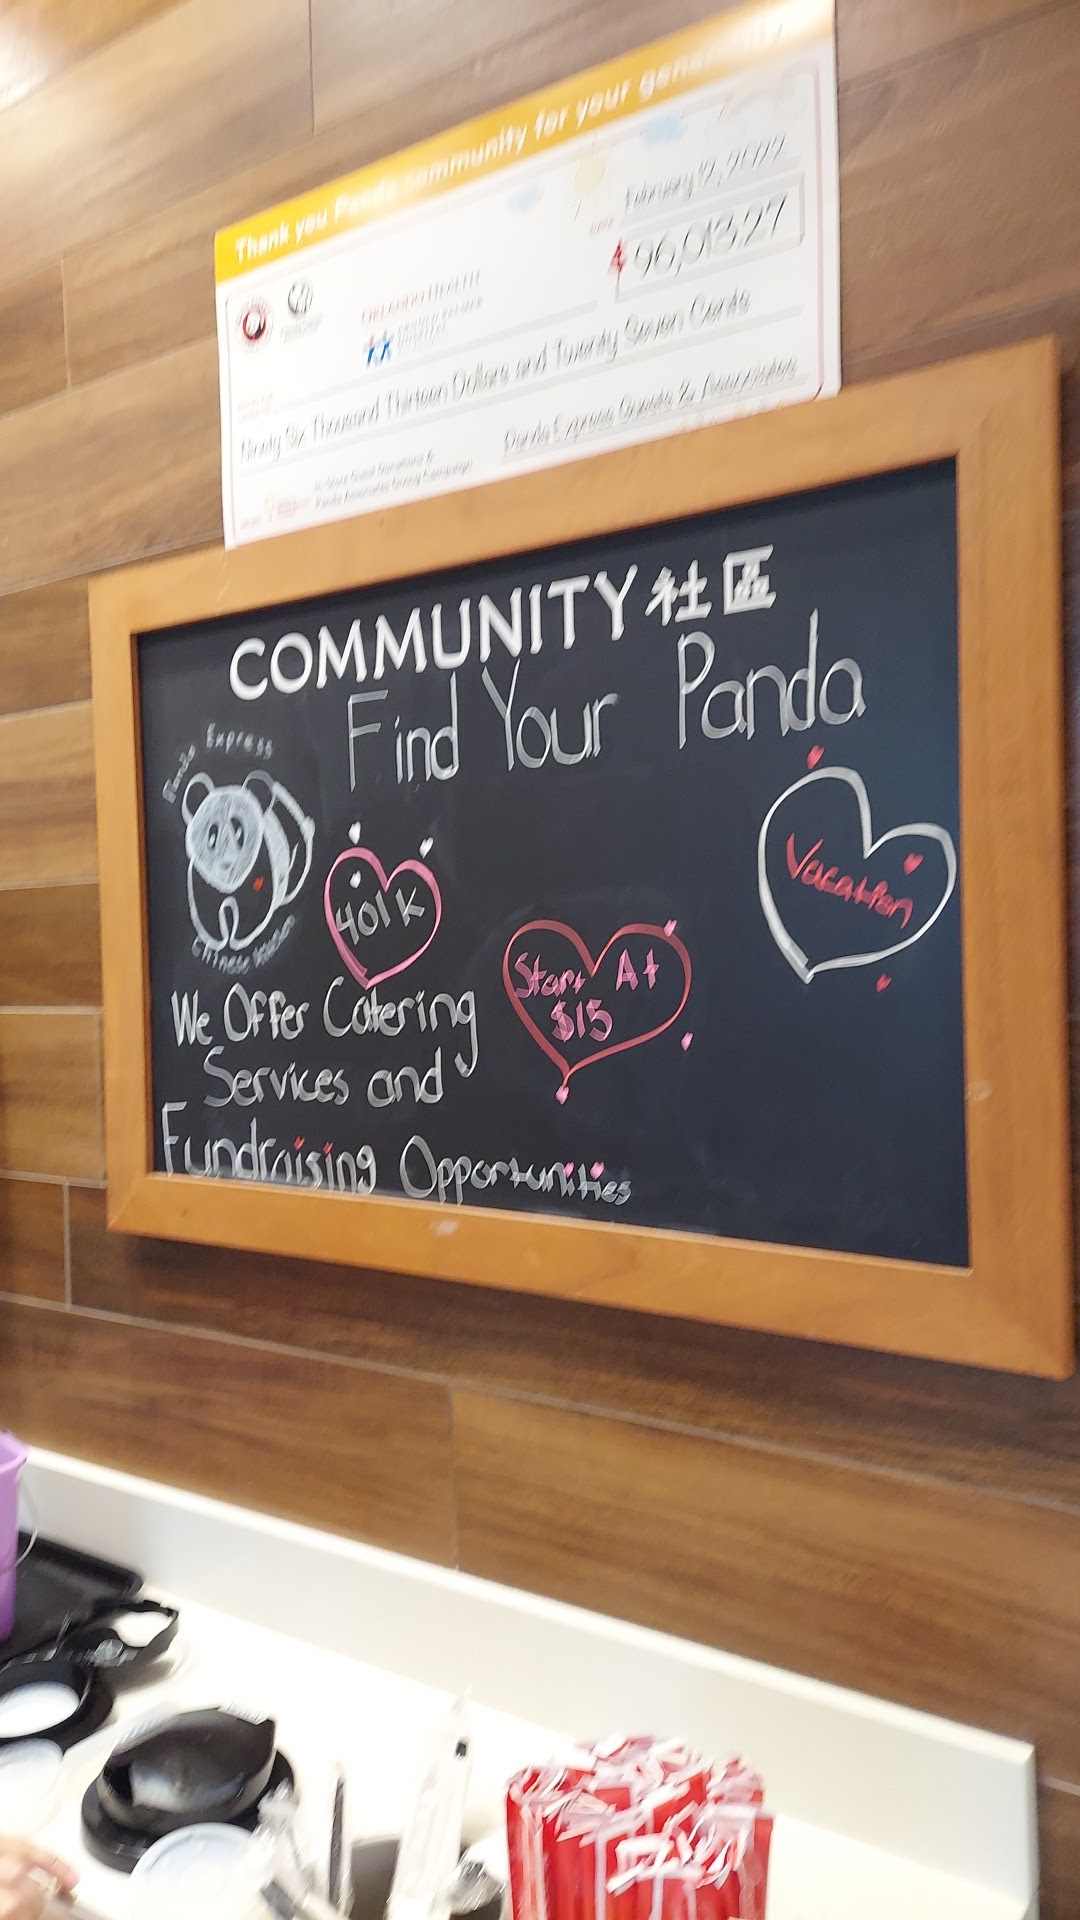 Thank you Panda community for your generosity
February 12, 2022
$ 96,013.27
ORLANDO HEALTH
ARNOLD PALMER
Ninety Six Thousand Thirteen Dollars and Twenty Seven Cents
Panda Express Guests & Associates
In-Store Guest Donations &
Panda Associates Giving Campaign
COMMUNITY 社區
Find Your Panda
Panda Express
Chinese Kitchen
401K
Start At
$15
Vacation
We Offer Catering
Services and
Fundraising Opportunities